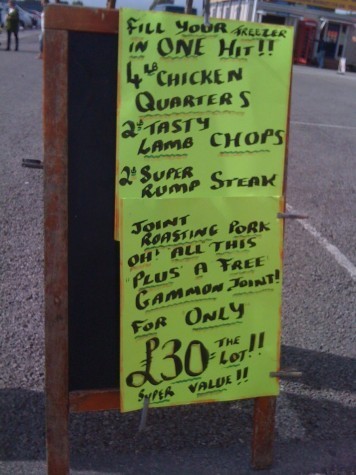 FILL YOUR FREEZER
IN ONE HIT!!
4LB CHICKEN
QUARTERS
2LB TASTY
LAMB CHOPS
2LB SUPER
RUMP STEAK
JOINT
ROASTING PORK
OH! ALL THIS
"PLUS" A FREE
GAMMON JOINT!
FOR ONLY
£30= THE LOT!!
SUPER VALUE!!